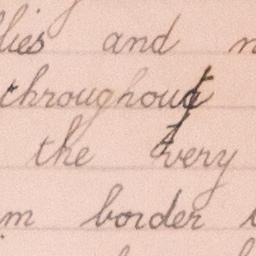 lies and
throughout
the very
m border